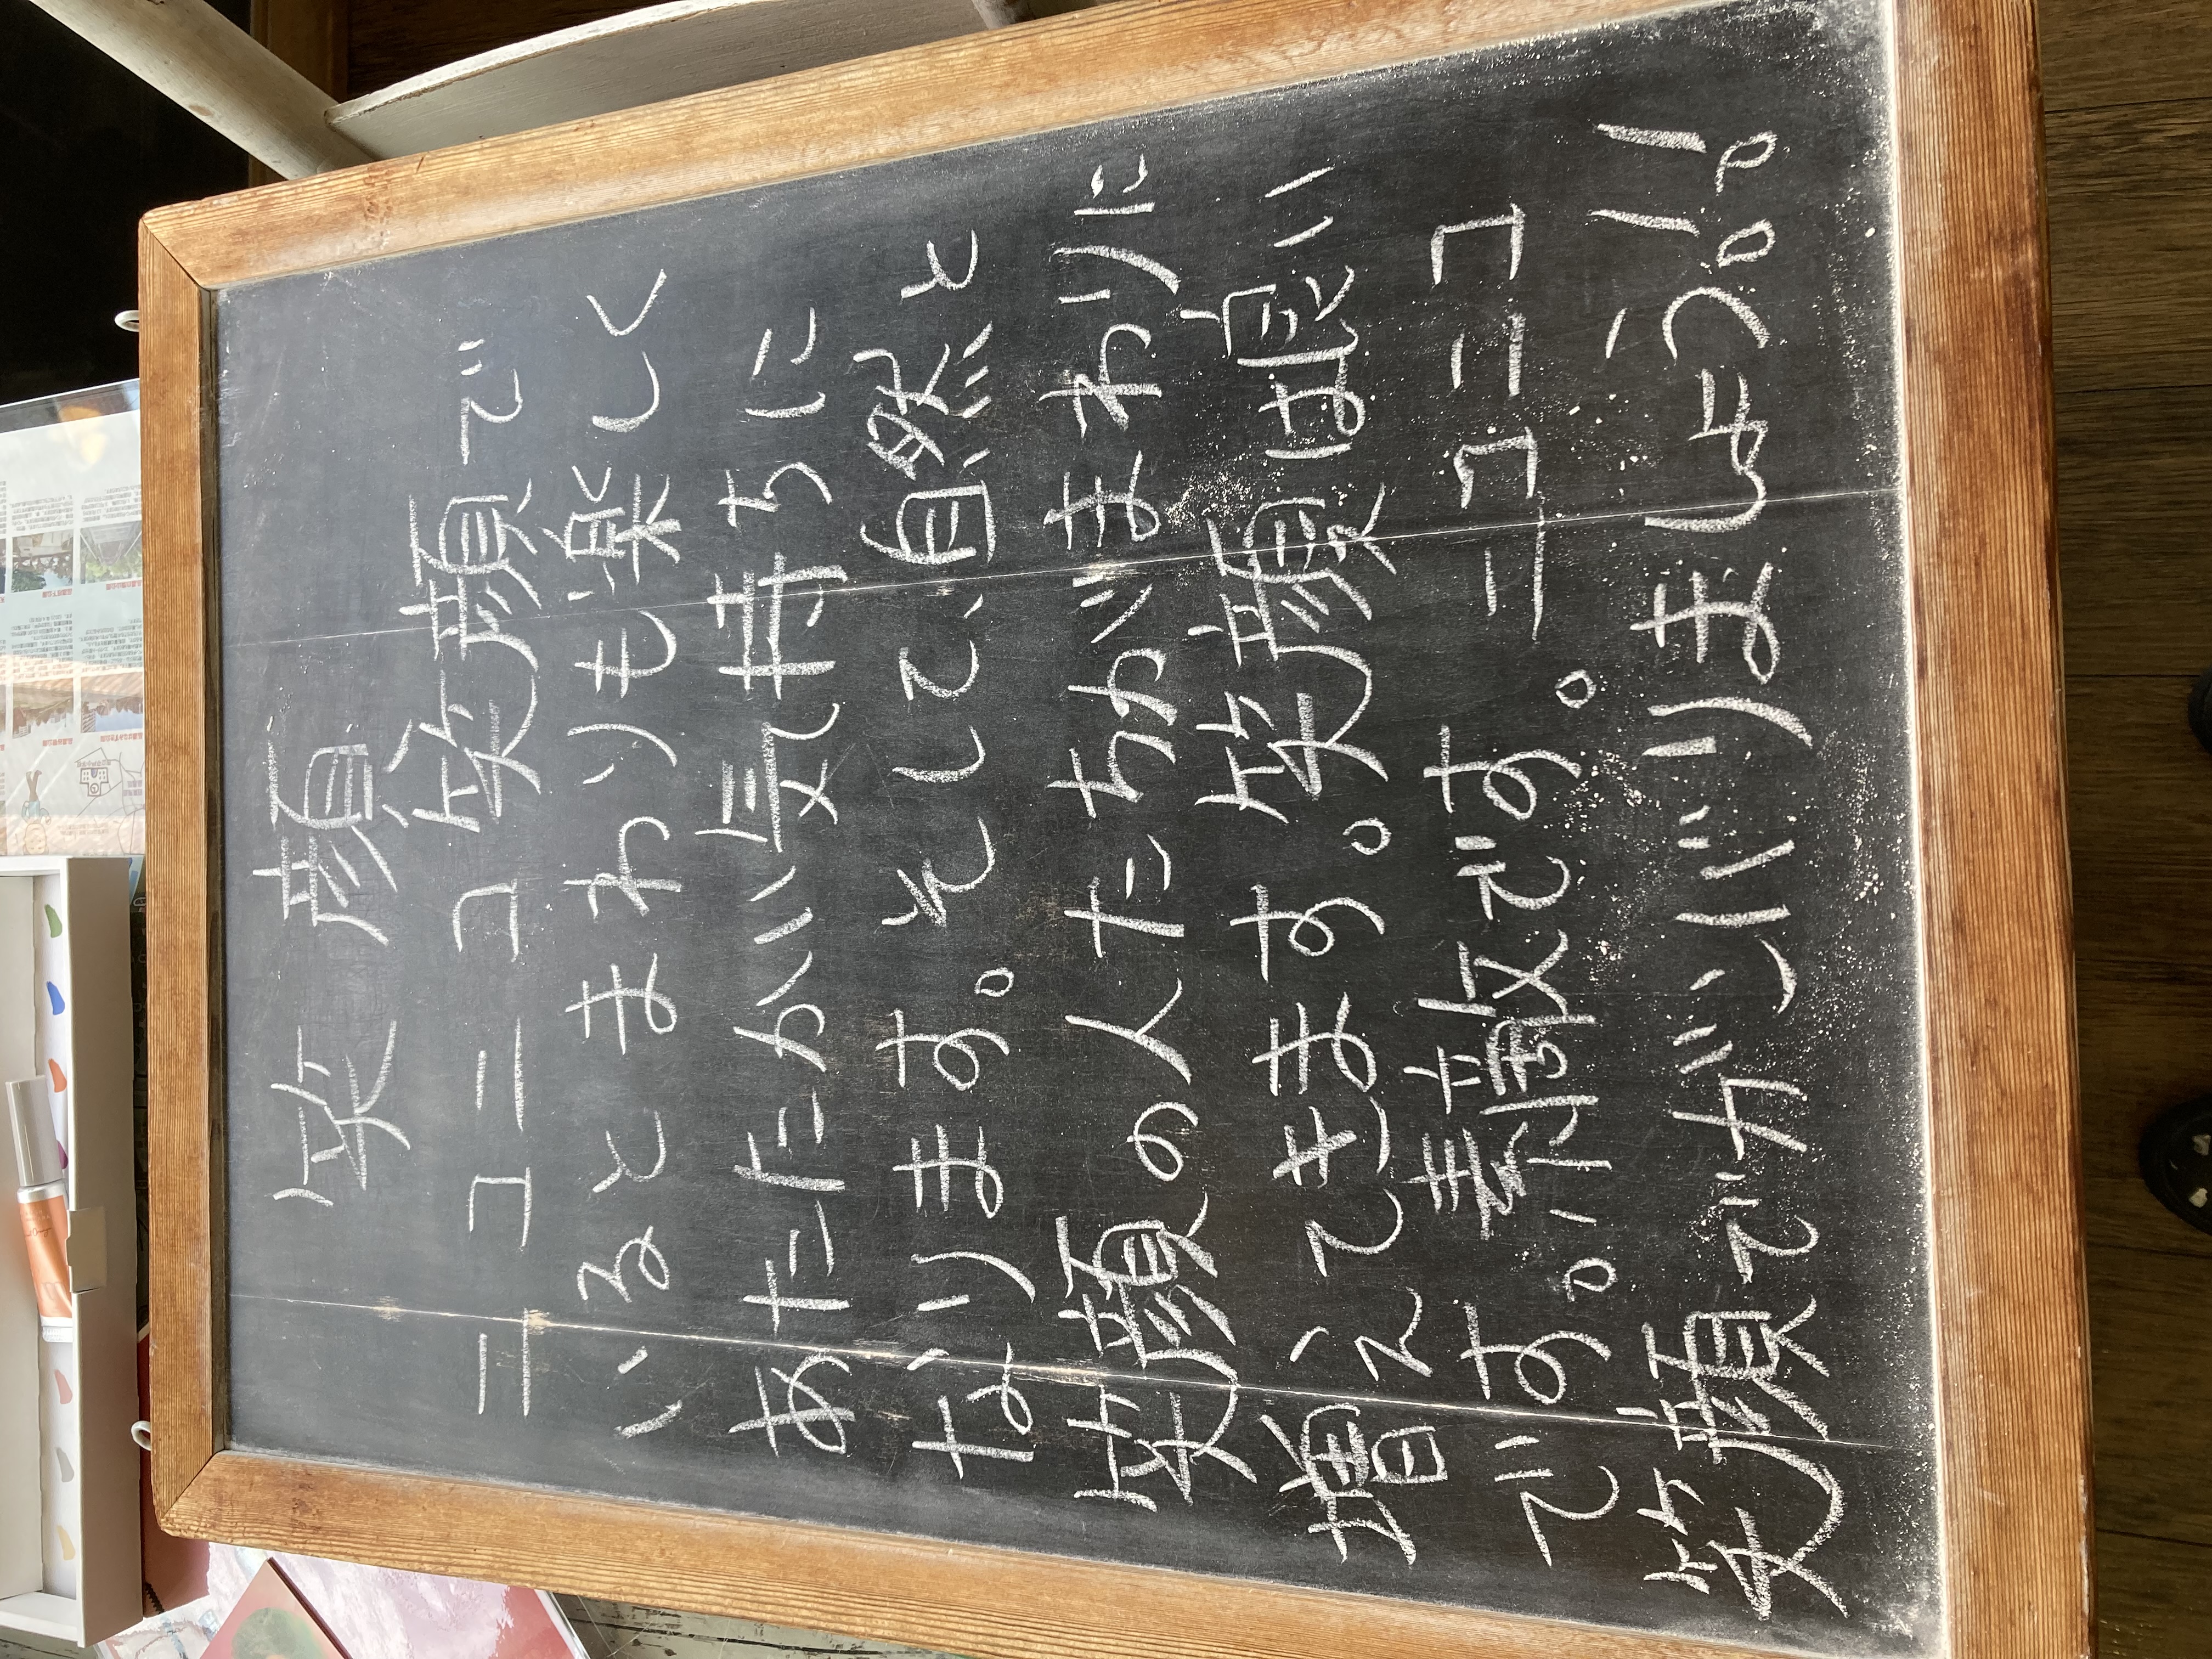 笑顔
ニコニコ笑顔で
いるとまわりも楽しく
あたたかい気持ちに
なります。そして、自然と
笑顔の人たちがまわりに
増えてきます。笑顔は良い
です。素敵です。ニコニコ
笑顔でガンバリましょう!!